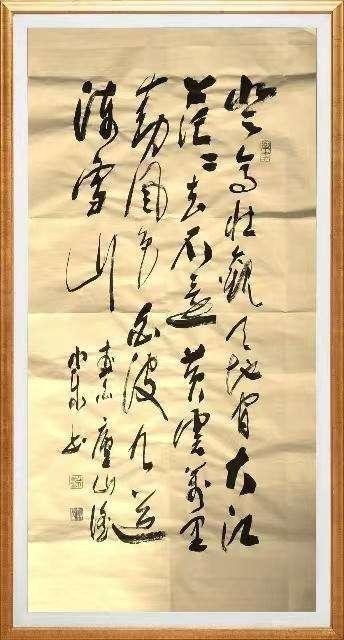 登高壮觀天地間大江
茫々去不還黄雲萬里
動風色白波九道
流雪山
李白廬山謠
书